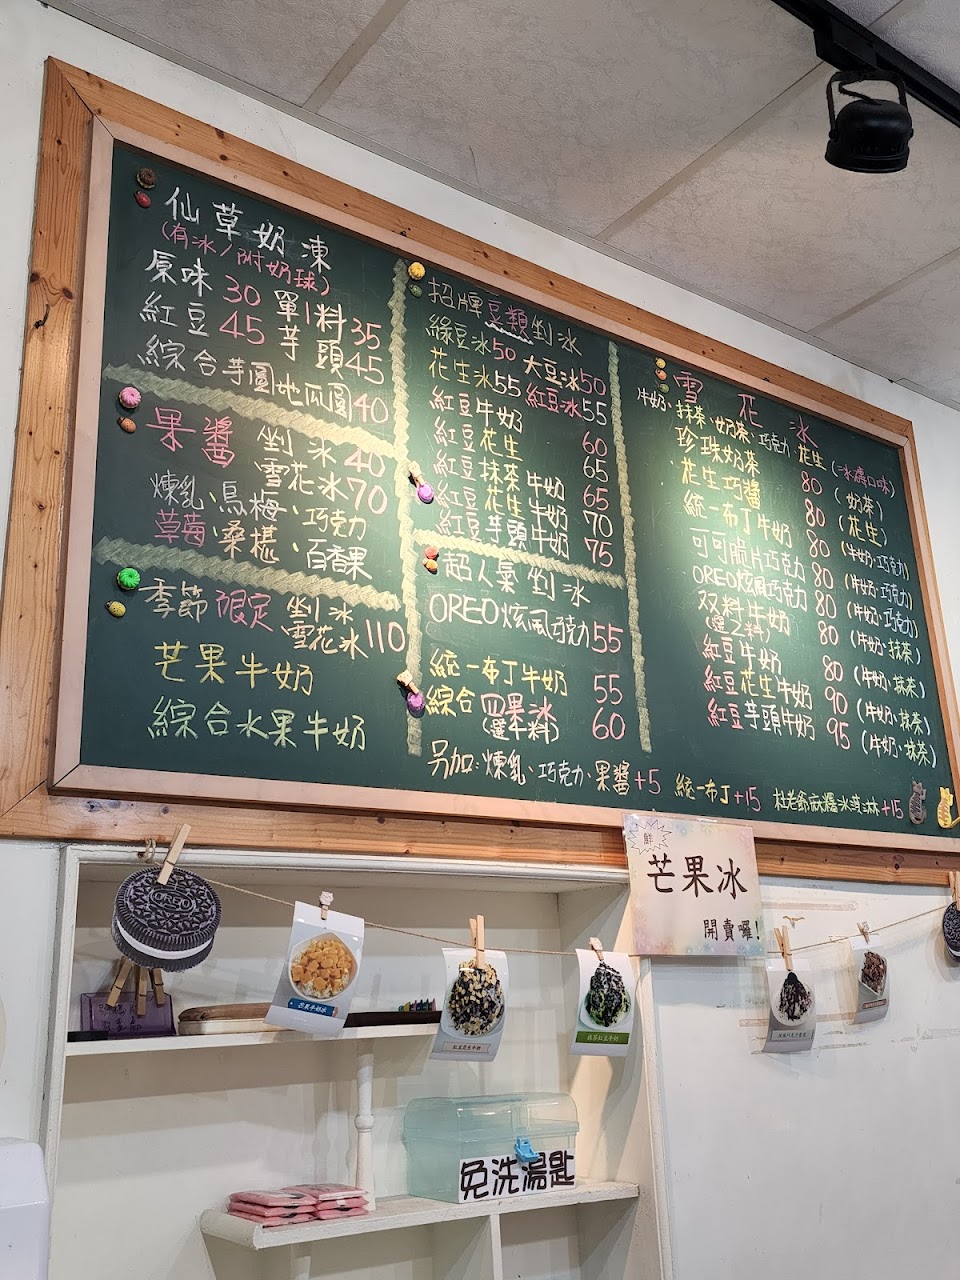 仙草奶凍
(有冰/附奶球)
原味 30 單1料 35
紅豆 45 芋頭 45
綜合芋圓地瓜圓 40
果醬 剉冰 40
雪花冰 70
煉乳、烏梅、巧克力
草莓、桑椹、百香果
季節限定 剉冰
雪花冰 110
芒果牛奶
綜合水果牛奶
招牌豆類剉冰
綠豆冰 50 大豆冰 50
花生冰 55 紅豆冰 55
紅豆牛奶 60
紅豆花生 65
紅豆抹茶牛奶 65
紅豆花生牛奶 70
紅豆芋頭牛奶 75
超人氣剉冰
OREO炫風巧克力 55
統一布丁牛奶 55
綜合四果冰 60
(選4料)
雪花冰
牛奶、抹茶、奶茶、巧克力、花生 (冰磚口味)
珍珠奶茶 80 (奶茶)
花生巧醬 80 (花生)
統一布丁牛奶 80 (牛奶、巧克力)
可可脆片巧克力 80 (牛奶、巧克力)
OREO炫風巧克力 80 (牛奶、巧克力)
双料牛奶 80 (牛奶、抹茶)
(選2料)
紅豆牛奶 80 (牛奶、抹茶)
紅豆花生牛奶 90 (牛奶、抹茶)
紅豆芋頭牛奶 95 (牛奶、抹茶)
另加:煉乳、巧克力、果醬+5 統一布丁+15 杜老爺麻糬冰淇淋+15
鮮
芒果冰
開賣囉!
OREO
芒果牛奶冰
紅豆花生牛奶
抹茶紅豆牛奶
免洗湯匙